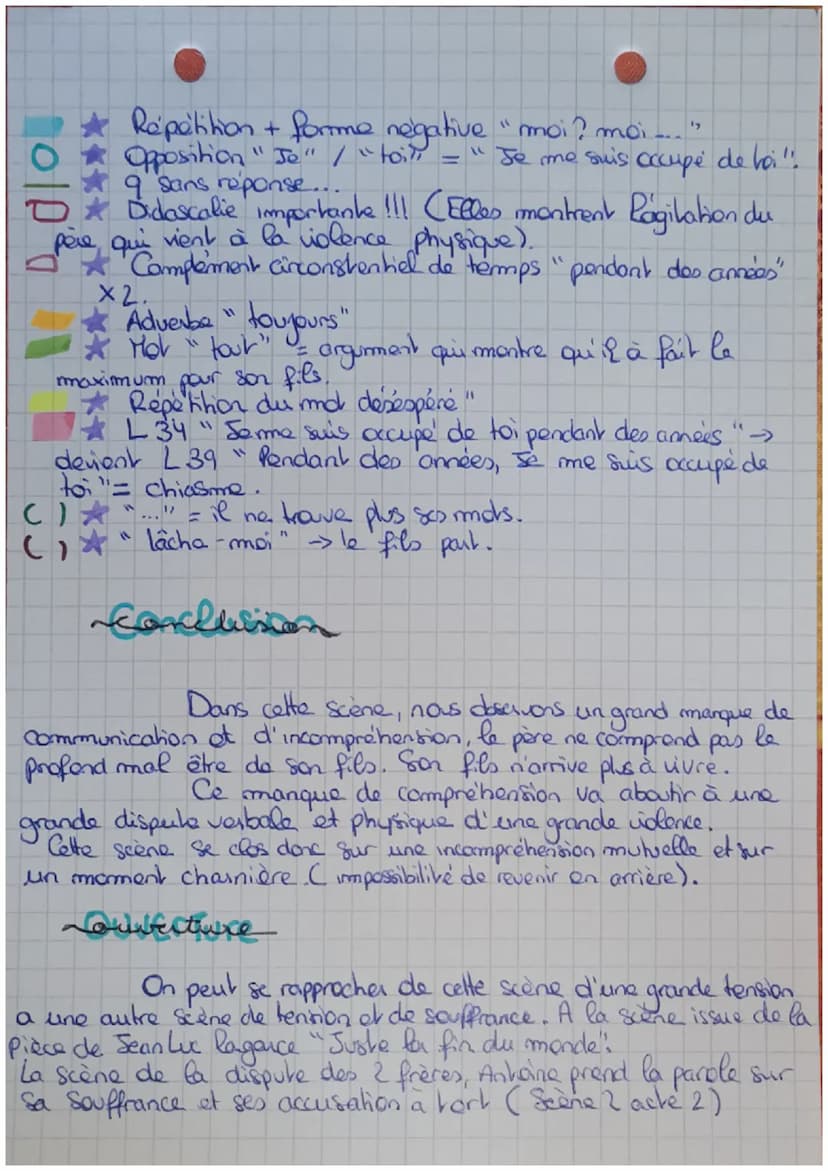 ★ Répétition + forme négative "moi? moi...."
★ Opposition "Je" / "toi" = "Je me suis occupé de toi".
★ 9 sans réponse...
★ Didascalie importante !!! (Elles montrent l'agitation du
père, qui vient à la violence physique).
★ Complément circonstentiel de temps "pendant des années"
x2.
★ Adverbe "toujours"
★ Mot "tout" = argument qui montre qu'il à fait le
maximum pour son fils.
★ Répétition du mot désespéré"
★ L 34 "Je me suis occupé de toi pendant des années" →
devient L39 "Pendant des années, Je me suis occupé de
toi" = chiasme.
( ) ★ "..." = il ne trouve plus ses mots.
( ) ★ "lâche-moi" → le fils part.
Conclusion
Dans cette scène, nous observons un grand manque de
communication et d'incompréhension, le père ne comprend pas le
profond mal être de son fils. Son fils n'arrive plus à vivre.
Ce manque de compréhension va aboutir à une
grande dispute verbale et physique d'une grande violence.
Cette scène se clos donc sur une incompréhension mutuelle et sur
un moment charnière. (impossibilité de revenir en arrière).
Ouverture
On peut se rapprocher de cette scène d'une grande tension
a une autre scène de tension et de souffrance. A la scène issue de la
pièce de Jean Luc Lagarce "Juste la fin du monde".
La scène de la dispute des 2 frères, Antoine prend la parole sur
sa souffrance et ses accusation à tort (Scène 2 acte 2)